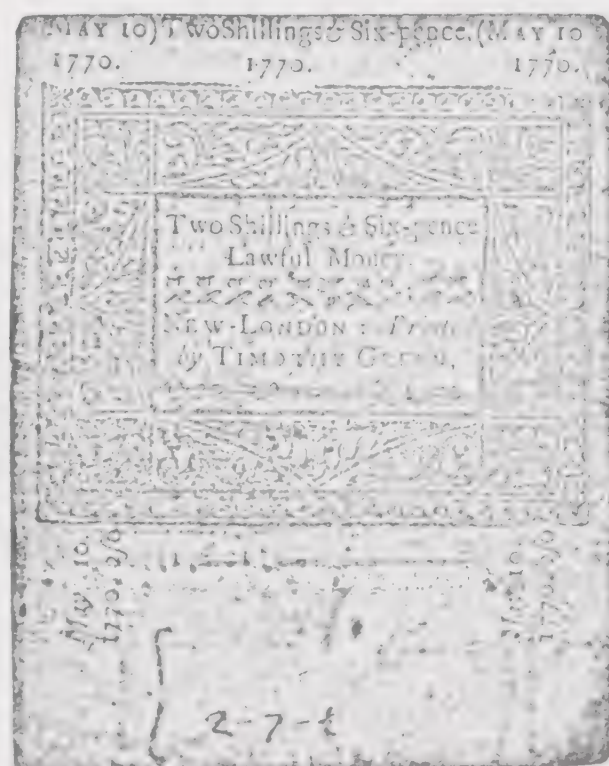 MAY 10) Two Shillings & Six-pence. (MAY 10
1770. 1770. 1770.
Two Shillings & Six-pence
Lawful Money.
NEW-LONDON: Printed
by TIMOTHY GREEN,
May 10.
1770. 2/6
May 10
1770. 2/6
2-7-